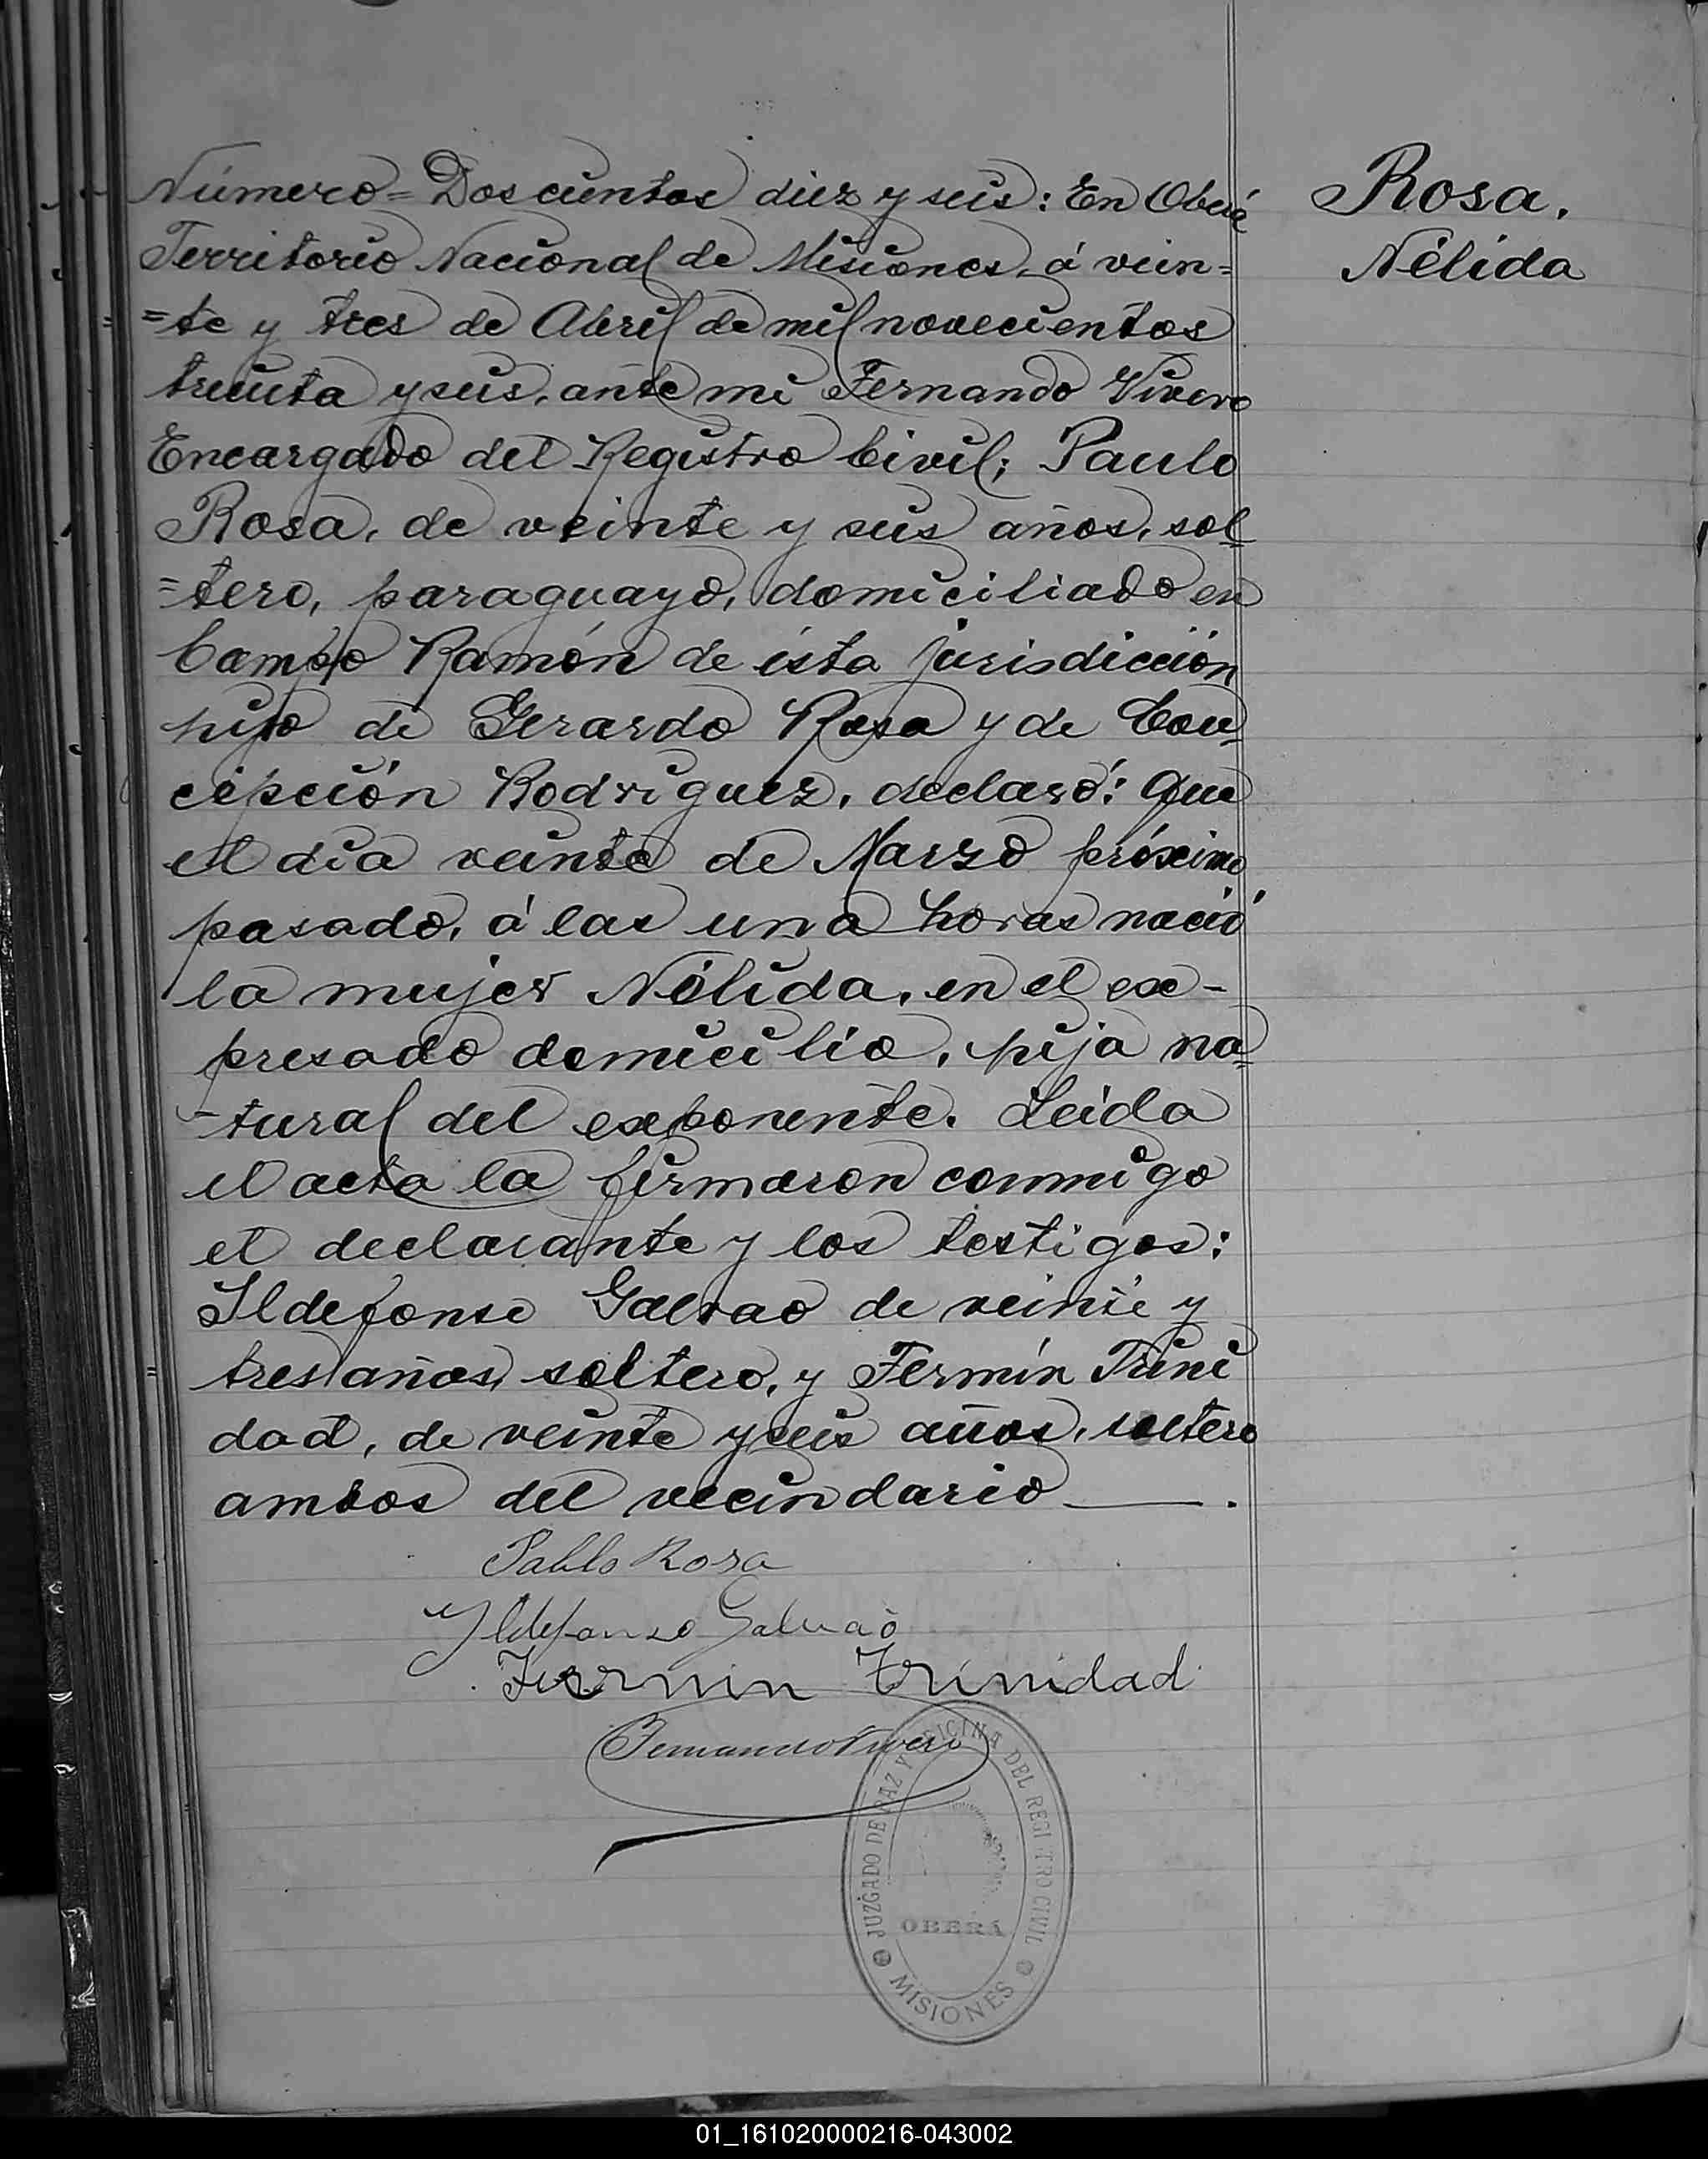 Número = Doscientos diez y seis: En Oberá
Territorio Nacional de Misiones, á vein=
=te y tres de Abril de mil novecientos
treinta y seis, ante mi Fernando Vivero
Encargado del Registro Civil; Paulo
Rosa, de veinte y seis años, sol=
=tero, paraguayo, domiciliado en
Campo Ramón de ésta jurisdicción
hijo de Gerardo Rosa y de Con=
cepción Rodriguez, declaró: Que
el dia veinte de Marzo próximo
pasado, á las una horas nació
la mujer Nélida, en el ex-
presado domicilio, hija na=
-tural del exponente. Leida
el acta la firmaron conmigo
el declarante y los testigos:
Ildefonso Galvao de veinte y
tres años, soltero, y Fermín Trini
dad, de veinte y seis años, soltero
ambos del vecindario ——.
Rosa,
Nélida
Pablo Rosa
Yldefonso Galvaò
Fermin Trinidad
Fernando Vivero
JUZGADO DE PAZ Y OFICINA DEL REGISTRO CIVIL
OBERÁ
MISIONES
01_161020000216-043002